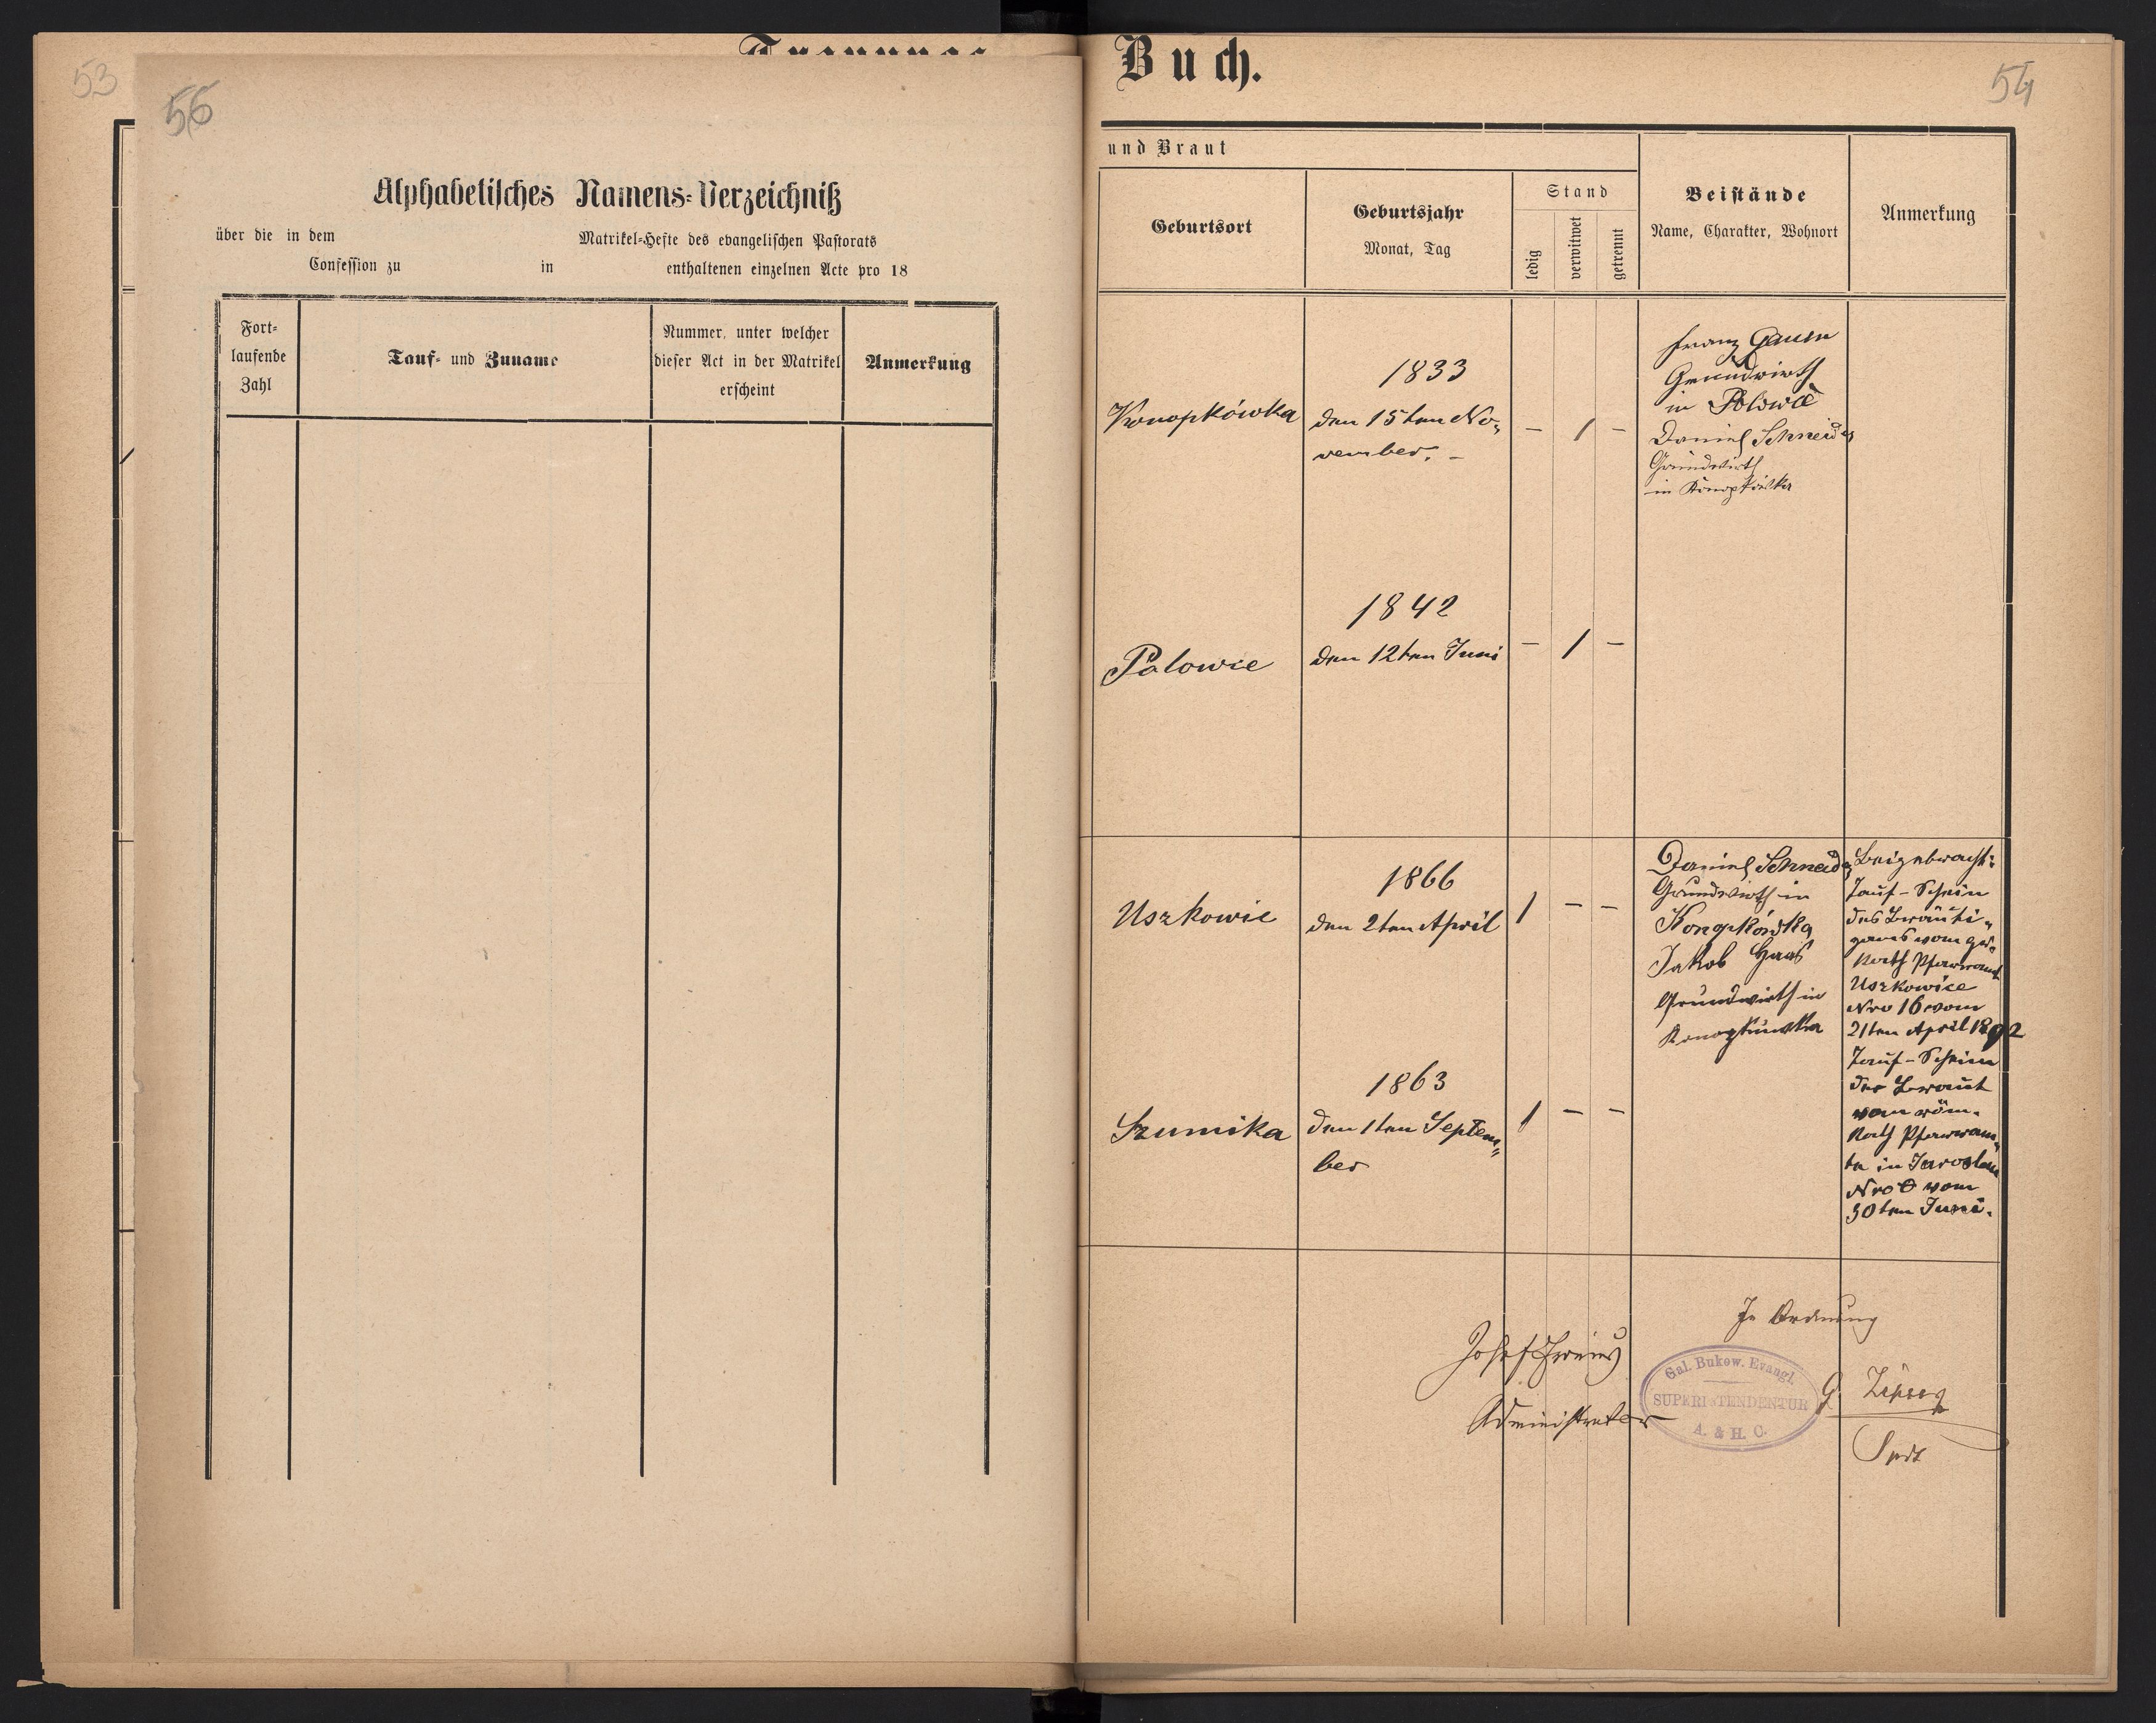 53
56
Alphabetisches Namens-Verzeichniß
über die in dem Matrikel-Hefte des evangelischen Pastorats
Confession zu in enthaltenen einzelnen Acte pro 18
Fort-
laufende
Zahl
Tauf- und Zuname
Nummer, unter welcher
dieser Act in der Matrikel
erscheint
Anmerkung
Buch.
54
und Braut
Geburtsort
Geburtsjahr
Monat, Tag
Stand
ledig
verwitwet
getrennt
Beistände
Name, Charakter, Wohnort
Anmerkung
Konopkówka
1833
den 15ten No-
vember. -
- 1 -
Franz
Grundwirth
in Polowce
Daniel Schneider
Grundwirth
in Konopkówka
Palowce
1842
den 12ten Juni
- 1 -
Uszkowic
1866
den 2ten April
1 - -
Daniel Schneider
Grundwirth in
Konopkówka
Jakob Haas
Grundwirth in
Konopkówka
Beigebracht:
Tauf-Schein
des Bräuti-
gams vom gr.
kath Pfarramt
Uszkowice
Nro 16 vom
21ten April 1892
Tauf-Schein
der Braut
vom röm.
kath Pfarram-
te in Jaroslau
Nro 0 vom
30ten Juni.
Szumika
1863
den 1ten Septem-
ber
1 - -
In Ordnung
Josef
Administrator
Gal. Bukow. Evangl.
SUPERINTENDENTUR
A. & H. C.
G.